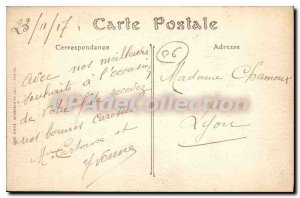 23/11/17
Carte Postale
Correspondance
Adresse
06
Avec nos meilleurs
souhaits à l'occasion
de votre fête recevez
nos bonnes caresses
Madame Chamoux
Lyon
et
Yvonne
POSTALES-CPA-COLLECTION